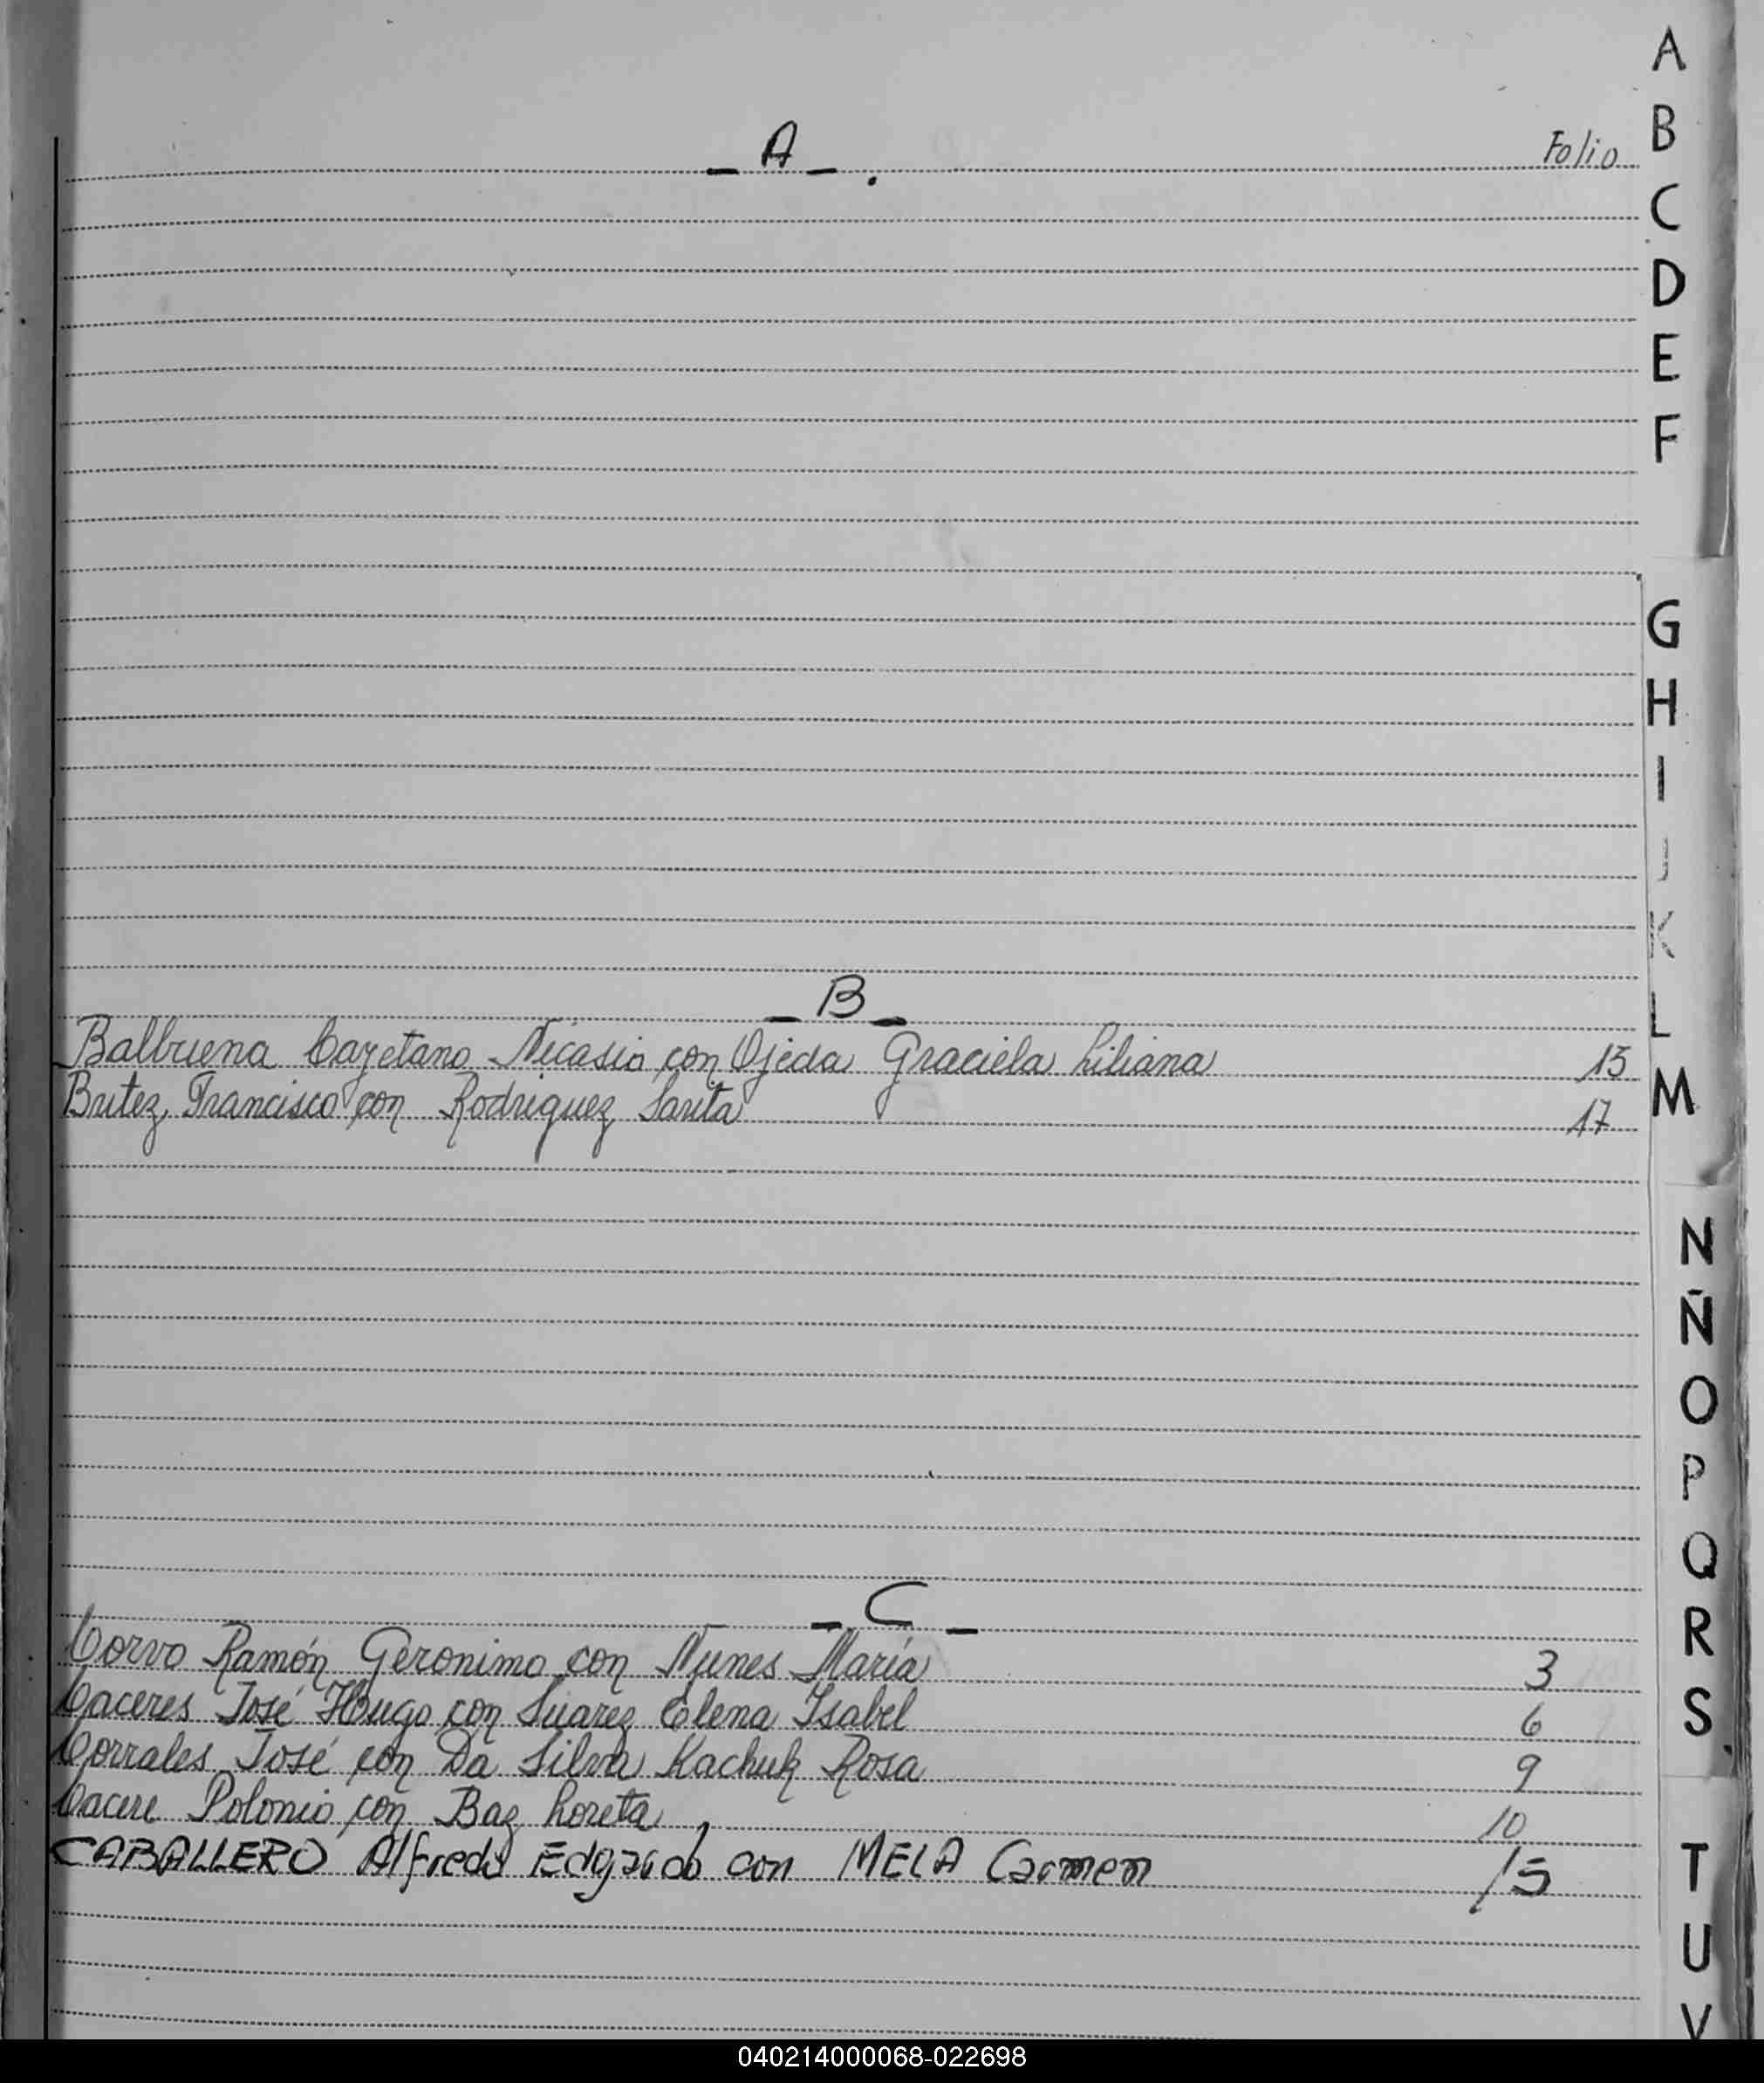 - A -.
Folio
- B -
Balbuena Cayetano Nicasio con Ojeda Graciela Liliana 13
Britez, Francisco con Rodriguez Sarita 17
- C -
Corvo Ramón Geronimo con Nunes María 3
Caceres José Hugo con Suarez Elena Isabel 6
Corrales José con Da Silva Kachuk Rosa 9
Cacere Polonio con Baz Loreta 10
CABALLERO Alfredo Edgardo con MELA Carmen 15
A
B
C
D
E
F
G
H
I
J
K
L
M
N
Ñ
O
P
Q
R
S
T
U
V
040214000068-022698